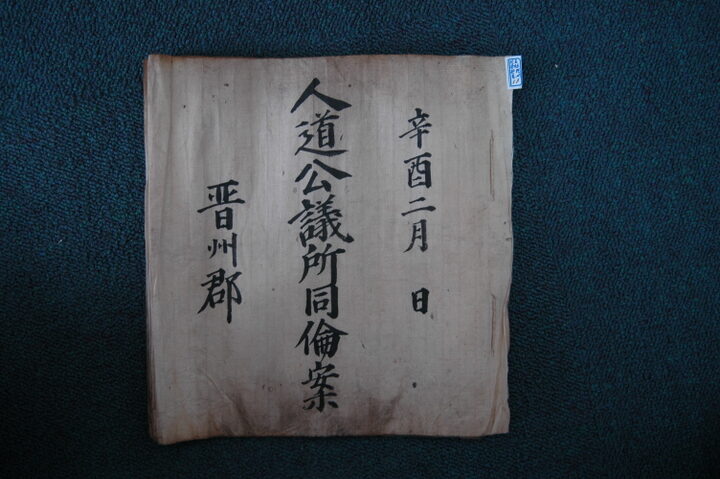 辛酉二月 日
人道公議所同倫案
晋州郡